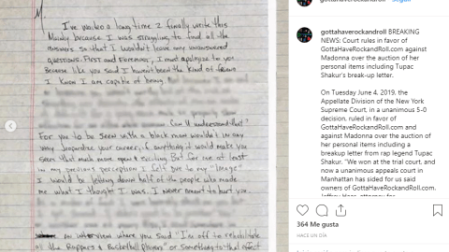 M
I've waited a long time 2 finally write this
Mainly because I was struggling to find all the
answers so that I wouldn't leave any unanswered
questions. First and foremost, I must apologize to you
Because like you said I haven't been the kind of friend
I know I am capable of being.
Can U understand that?
For you to be seen with a black man wouldn't in any
way jeopardize your career, if anything it would make you
seem that much more open & exciting. But for me at least
in my previous perception I felt due to my "Image"
I would be letting down half of the people who made
me what I thought I was. I never meant to hurt you
an interview where you said "I'm off to rehabilitate
all the Rappers & Basketball Players" or something to that effect
gottahaverockandroll
gottahaverockandroll BREAKING
NEWS: Court rules in favor of
GottaHaveRockandRoll.com against
Madonna over the auction of her
personal items including Tupac
Shakur's break-up letter.
On Tuesday June 4, 2019, the
Appellate Division of the New York
Supreme Court, in a unanimous 5-0
decision, ruled in favor of
GottaHaveRockandRoll.com and
against Madonna over the auction of
her personal items including a
breakup letter from rap legend Tupac
Shakur. "We won at the trial court, and
now a unanimous appeals court in
Manhattan has sided for us said
owners of GottaHaveRockandRoll.com.
364
HACE UN DÍA